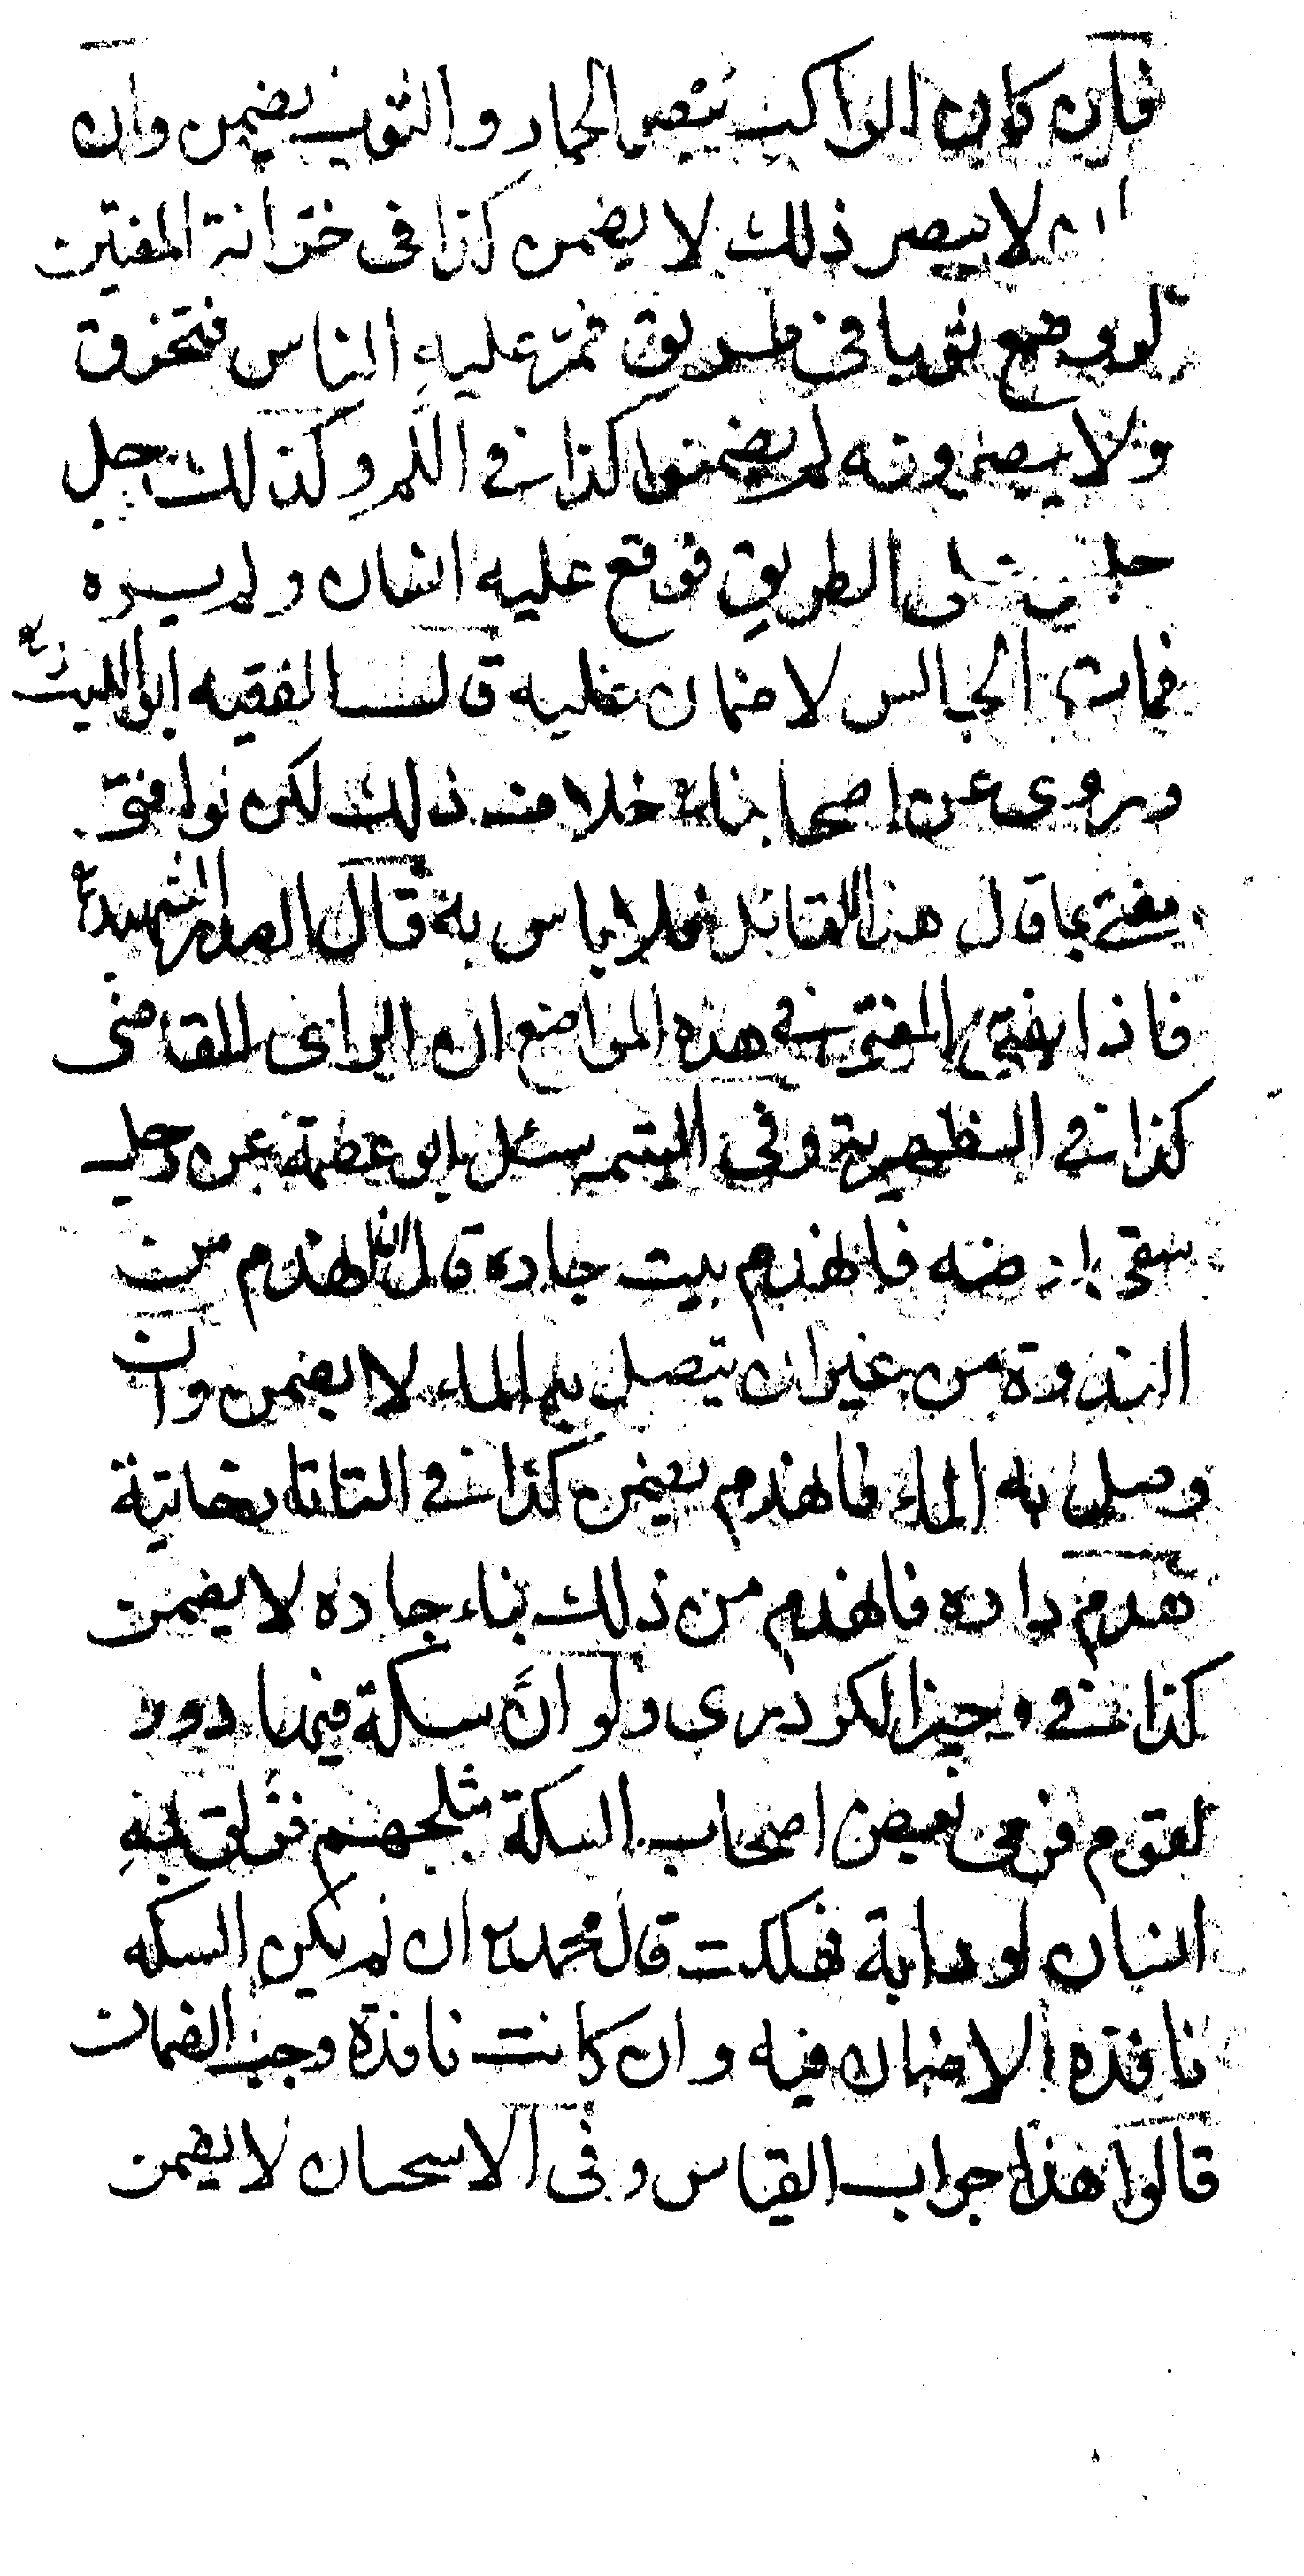 فان كان الراكب يبصر الحمار والثوب يضمن وان
كان لا يبصر ذلك لا يضمن كذا فى خزانة المفتين
لو وضع ثوبا فى طريق فمر عليه الناس فتخرق
ولا يبصرونه لم يضمنوا كذا فى وكذلك رجل
جلس على الطريق فوقع عليه انسان ولم يره
فمات الجالس لا ضمان عليه قال الفقيه ابو الليث رح
وروى عن اصحابنا خلاف ذلك لكن لو افتى
مفتى بما قال هذا القائل فلا باس به قال الصدر الشهيد
فاذا يفتى المفتى فى هذه المواضع ان الراى للقاضى
كذا فى الظهيرية وفى اليتيمه سئل ابو عصمة عن رجل
سقى ارضه فانهدم بيت جاره قال ان انهدم من
الندوة من غير ان يتصل به الماء لا يضمن وان
وصل به الماء فانهدم يضمن كذا فى التاتارخانية
هدم داره فانهدم من ذلك بناء جاره لا يضمن
كذا فى وجيز الكردرى ولو انّ سكة فيها دور
لقوم فرمى بعض اصحاب السكة ثلجهم فزلق به
انسان او دابة فهلكت قال محمد ان لم يكن السكه
نافذه لا ضمان فيه وان كانت نافذة وجب الضمان
قالوا هذا جواب القياس وفى الاسحسان لا يضمن